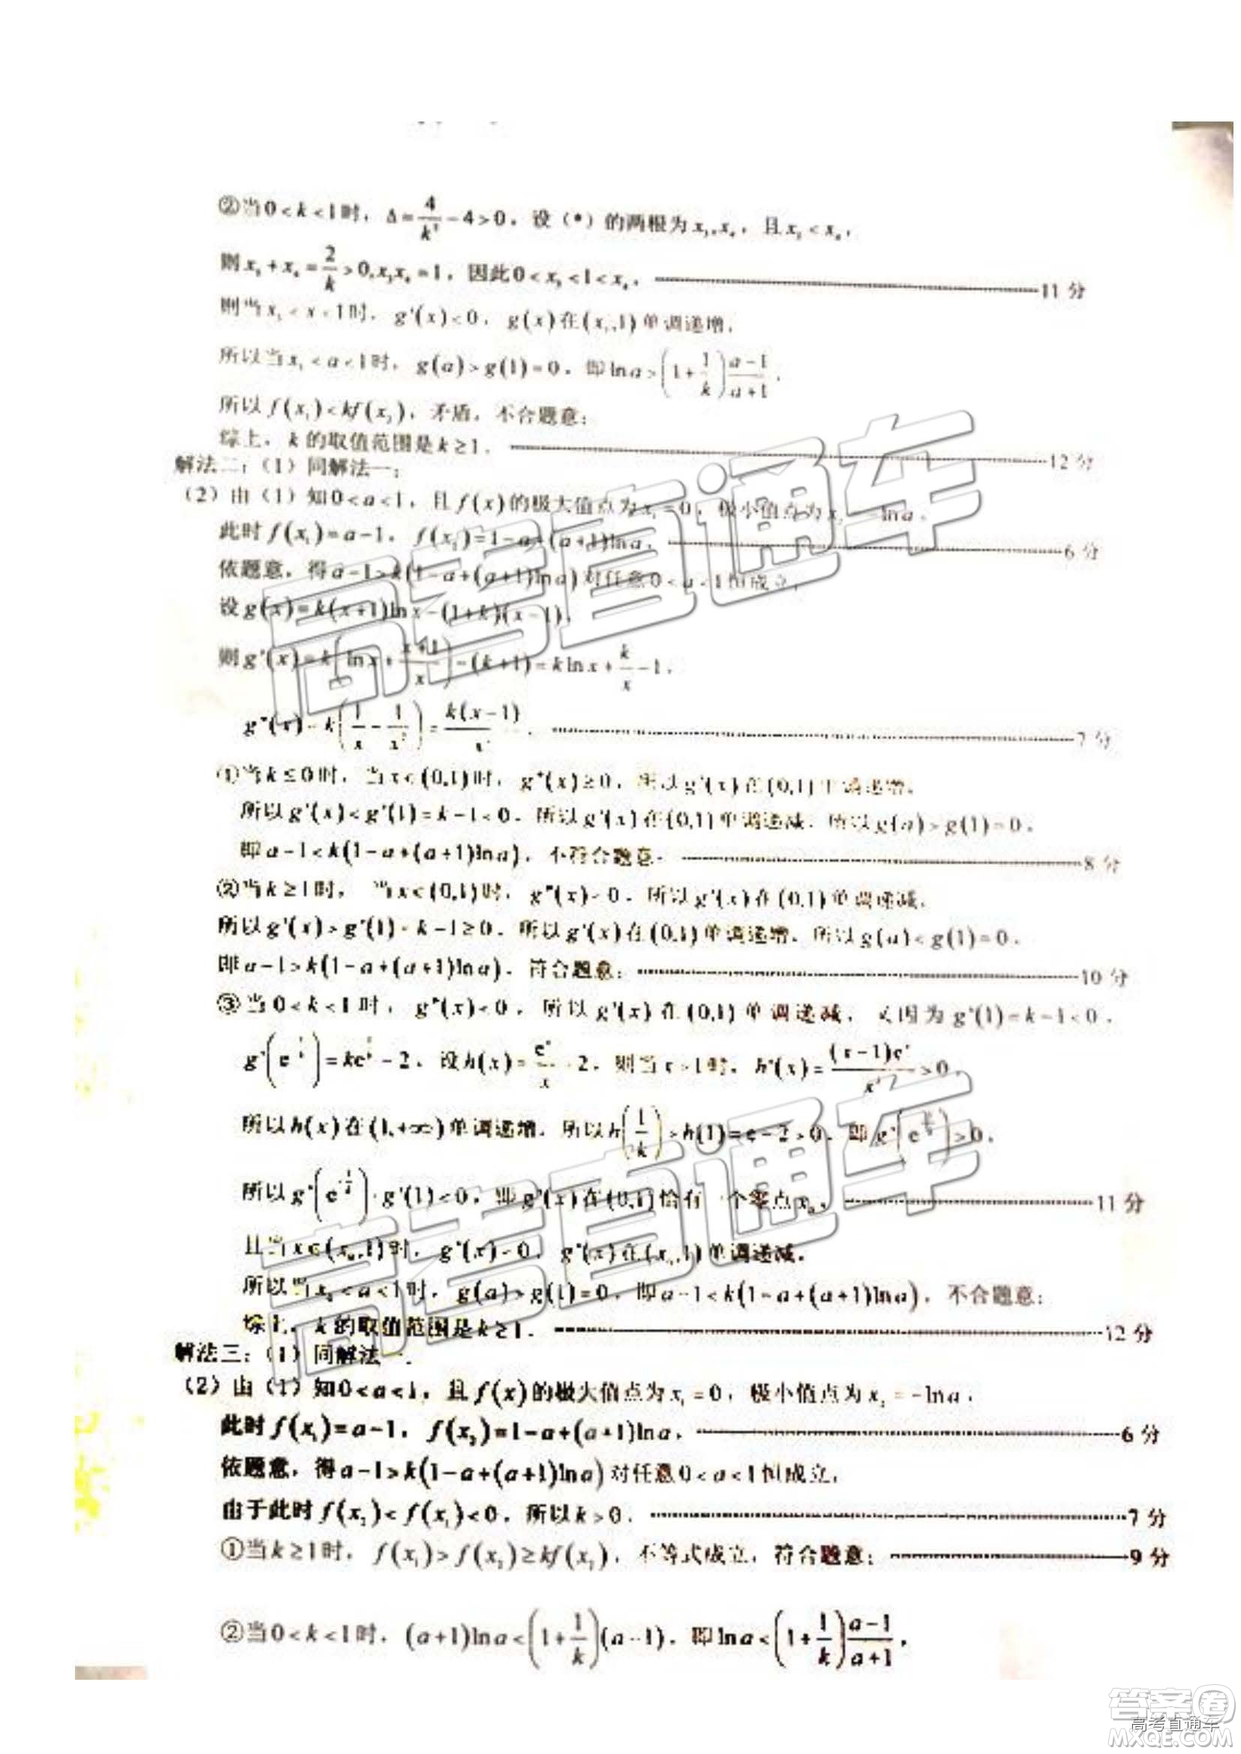 ②当0<k<1时，Δ=4/k²-4>0，设（*）的两根为x₃,x₄，且x₃<x₄，
则x₃+x₄=2/k>0,x₃x₄=1，因此0<x₃<1<x₄，11分
则当x₃<x<1时，g'(x)<0，g(x)在(x₃,1)单调递增，
所以当x₃<a<1时，g(a)>g(1)=0，即lna>(1+1/k)(a-1)/(a+1)，
所以f(x₁)<kf(x₂)，矛盾，不合题意；
综上，k的取值范围是k≥1．12分
解法二：（1）同解法一；
（2）由（1）知0<a<1，且f(x)的极大值点为x₁=0，极小值点为x₂=-lna，
此时f(x₁)=a-1，f(x₂)=1-a+(a+1)lna，6分
依题意，得a-1>k(1-a+(a+1)lna)对任意0<a<1恒成立，
设g(x)=k(x+1)lnx-(1+k)(x-1)，
则g'(x)=k(lnx+(x+1)/x)-(k+1)=klnx+k/x-1，
g"(x)=k(1/x-1/x²)=k(x-1)/x²．7分
①当k≤0时，当x∈(0,1)时，g"(x)≥0，所以g'(x)在(0,1)单调递增，
所以g'(x)<g'(1)=k-1<0，所以g'(x)在(0,1)单调递减，所以g(a)>g(1)=0，
即a-1<k(1-a+(a+1)lna)，不符合题意．8分
②当k≥1时，当x∈(0,1)时，g"(x)<0，所以g'(x)在(0,1)单调递减，
所以g'(x)>g'(1)=k-1≥0，所以g'(x)在(0,1)单调递增，所以g(a)<g(1)=0，
即a-1>k(1-a+(a+1)lna)，符合题意；10分
③当0<k<1时，g"(x)<0，所以g'(x)在(0,1)单调递减，又因为g'(1)=k-1<0，
设h(x)=eˣ/x-2，则当x>1时，h'(x)=(x-1)eˣ/x²>0，
所以h(x)在(1,+∞)单调递增，所以h(1/k)>h(1)=e-2>0，即
所以 g'(1)<0，即g'(x)在(0,1)恰有一个零点x₀，11分
且当x∈(x₀,1)时，g'(x)<0，g'(x)在(x₀,1)单调递减，
所以当x₀<a<1时，g(a)>g(1)=0，即a-1<k(1-a+(a+1)lna)，不合题意；
综上，k的取值范围是k≥1．12分
解法三：（1）同解法一．
（2）由（1）知0<a<1，且f(x)的极大值点为x₁=0，极小值点为x₂=-lna，
此时f(x₁)=a-1，f(x₂)=1-a+(a+1)lna，6分
依题意，得a-1>k(1-a+(a+1)lna)对任意0<a<1恒成立，
由于此时f(x₂)<f(x₁)<0，所以k>0．7分
①当k≥1时，f(x₁)>f(x₂)≥kf(x₂)，不等式成立，符合题意；9分
②当0<k<1时，(a+1)lna<(1+1/k)(a-1)，即lna<(1+1/k)(a-1)/(a+1)，
高考直通车
高考直通车
答案圈
高考直通车
MXQE.COM